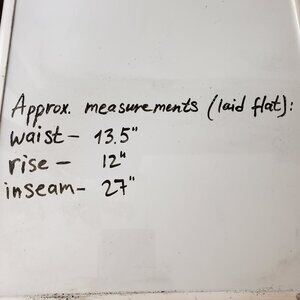 Approx. measurements (laid flat):
waist - 13.5"
rise - 12"
inseam - 27"